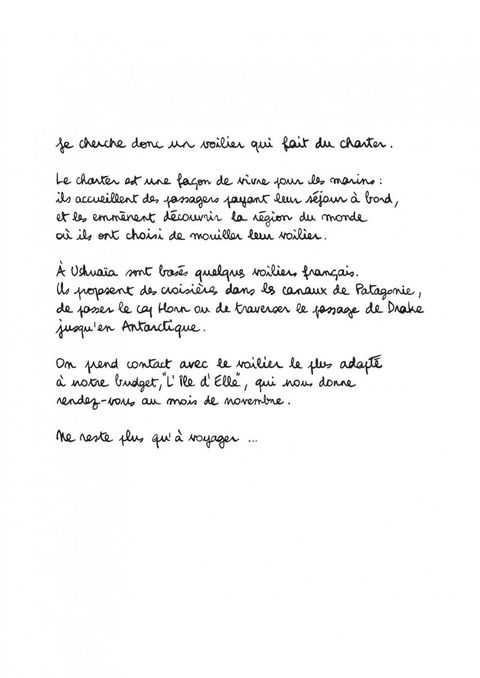 Je cherche donc un voilier qui fait du charter.
Le charter est une façon de vivre pour les marins :
ils accueillent des passagers payant leur séjour à bord,
et les emmènent découvrir la région du monde
où ils ont choisi de mouiller leur voilier.
À Ushuaïa sont basés quelques voiliers français.
Ils proposent des croisières dans les canaux de Patagonie,
de passer le cap Horn ou de traverser le passage de Drake
jusqu'en Antarctique.
On prend contact avec le voilier le plus adapté
à notre budget, "L'Ile d'Elle", qui nous donne
rendez-vous au mois de novembre.
Ne reste plus qu'à voyager ...